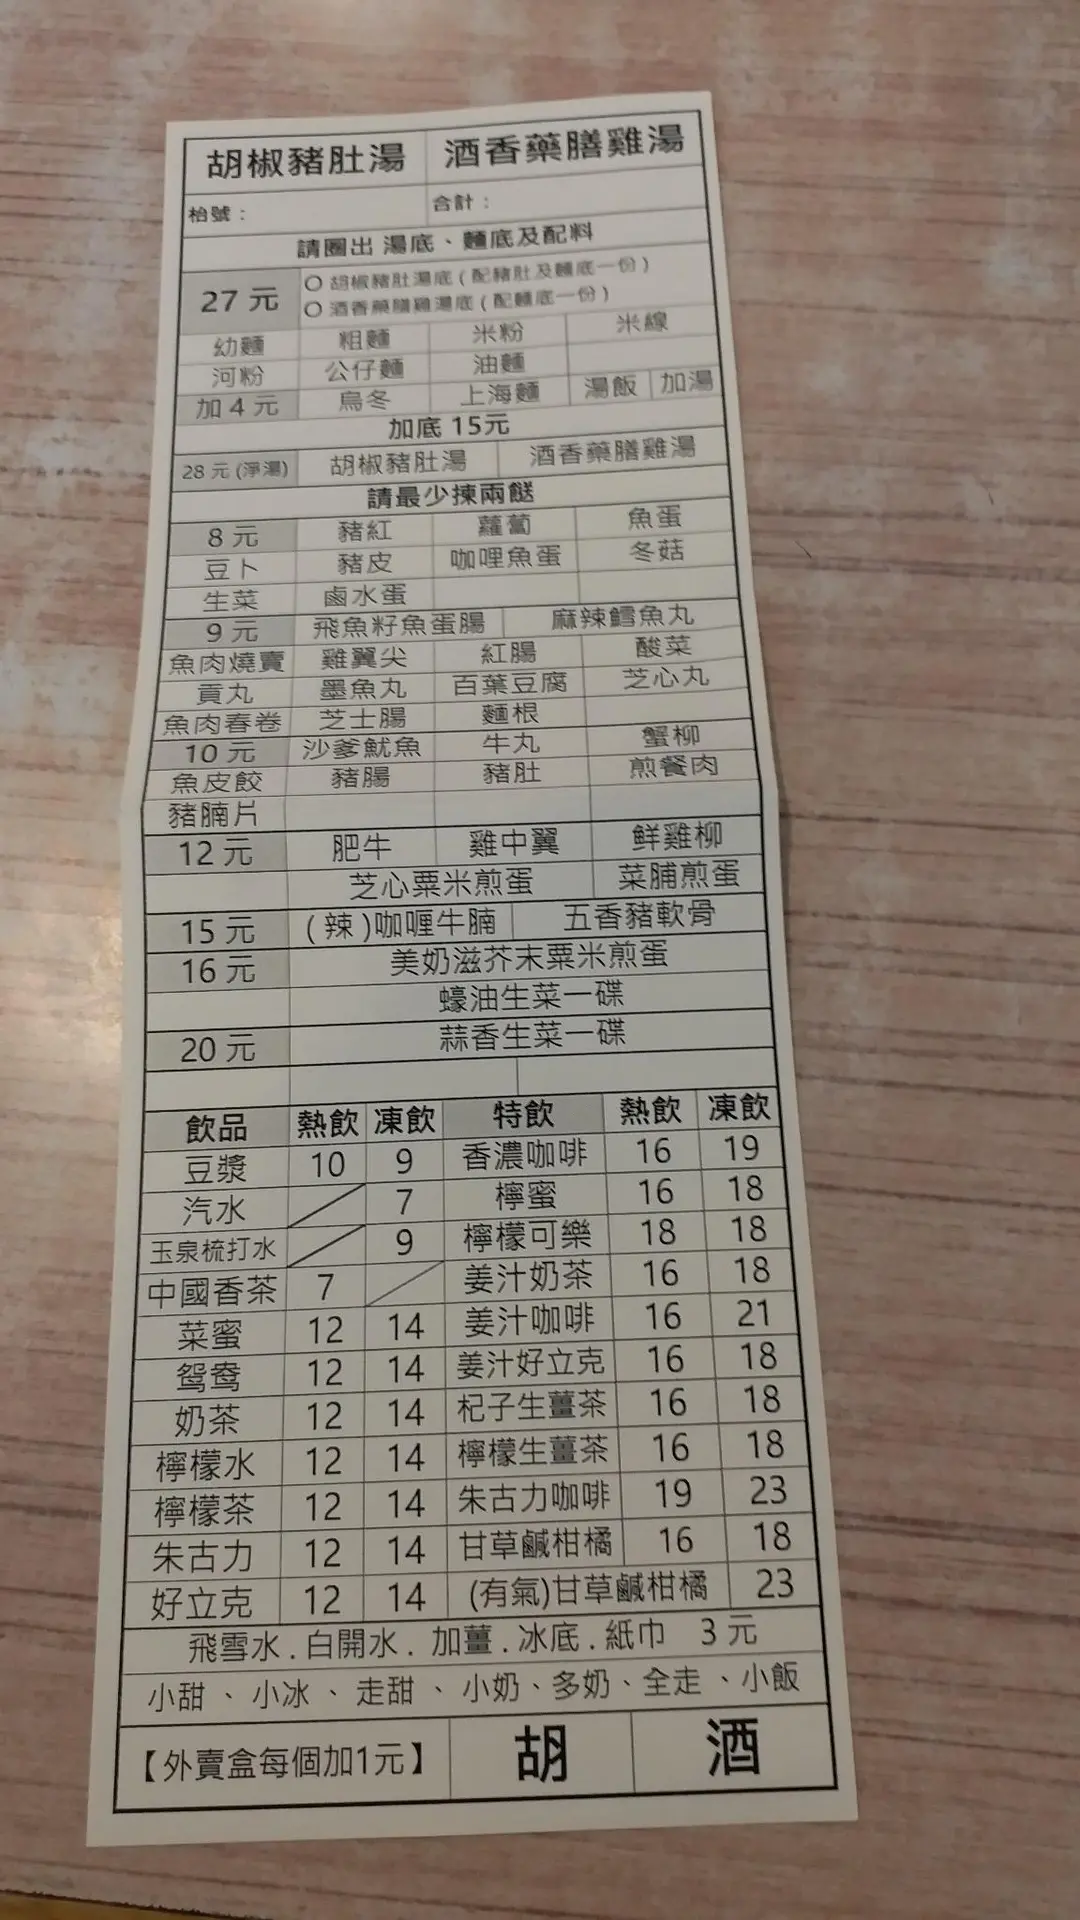 胡椒豬肚湯 酒香藥膳雞湯
枱號： 合計：
請圈出 湯底、麵底及配料
27 元 ○ 胡椒豬肚湯底 ( 配豬肚及麵底一份 )
○ 酒香藥膳雞湯底 ( 配麵底一份 )
幼麵 粗麵 米粉 米線
河粉 公仔麵 油麵
加 4 元 烏冬 上海麵 湯飯 加湯
加底 15元
28 元 (淨湯) 胡椒豬肚湯 酒香藥膳雞湯
請最少揀兩餸
8 元 豬紅 蘿蔔 魚蛋
豆卜 豬皮 咖哩魚蛋 冬菇
生菜 鹵水蛋
9 元 飛魚籽魚蛋腸 麻辣鱈魚丸
魚肉燒賣 雞翼尖 紅腸 酸菜
貢丸 墨魚丸 百葉豆腐 芝心丸
魚肉春卷 芝士腸 麵根
10 元 沙爹魷魚 牛丸 蟹柳
魚皮餃 豬腸 豬肚 煎餐肉
豬腩片
12 元 肥牛 雞中翼 鮮雞柳
芝心粟米煎蛋 菜脯煎蛋
15 元 ( 辣 )咖喱牛腩 五香豬軟骨
16 元 美奶滋芥末粟米煎蛋
蠔油生菜一碟
20 元 蒜香生菜一碟
飲品 熱飲 凍飲 特飲 熱飲 凍飲
豆漿 10 9 香濃咖啡 16 19
汽水 7 檸蜜 16 18
玉泉梳打水 9 檸檬可樂 18 18
中國香茶 7 姜汁奶茶 16 18
菜蜜 12 14 姜汁咖啡 16 21
鴛鴦 12 14 姜汁好立克 16 18
奶茶 12 14 杞子生薑茶 16 18
檸檬水 12 14 檸檬生薑茶 16 18
檸檬茶 12 14 朱古力咖啡 19 23
朱古力 12 14 甘草鹹柑橘 16 18
好立克 12 14 (有氣)甘草鹹柑橘 23
飛雪水 . 白開水 . 加薑 . 冰底 . 紙巾 3 元
小甜 、 小冰 、 走甜 、 小奶、多奶、全走 、小飯
【外賣盒每個加1元】 胡 酒